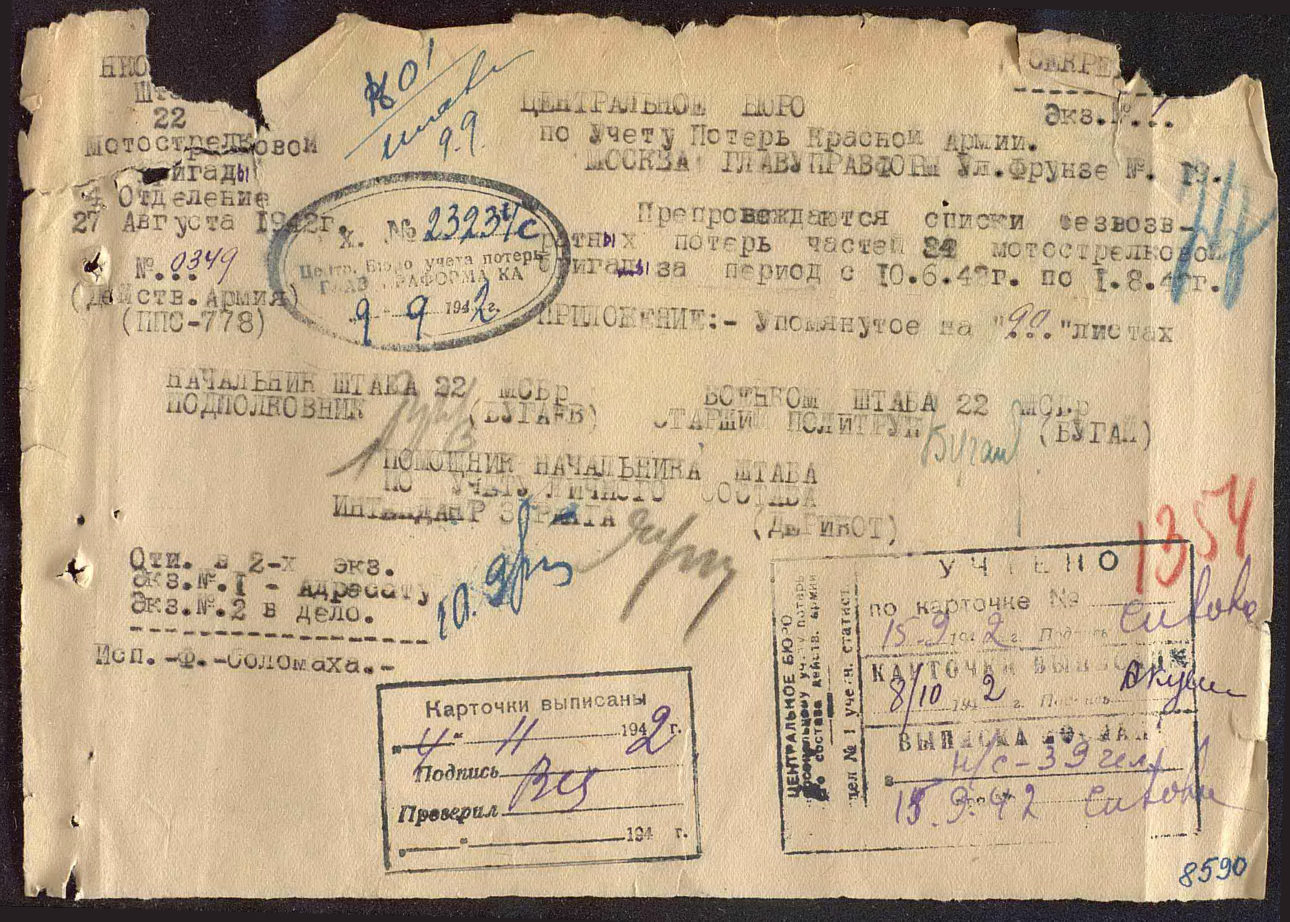 НКО
Шта
22
Мотострелковой
бригады
4 Отделение
27 Августа 1942г.
№..0349
(Действ.Армия)
(ППС-778)
99.
СЕКРЕ
Экз.№.1.
ЦЕНТРАЛЬНОЕ БЮРО
по Учету Потерь Красной Армии.
МОСКВА ГЛАВУПРАФОРМ Ул.Фрунзе №. 19.
х. № 2323 с
Центр. Бюро учета потерь
ГЛАВУПРАФОРМА КА
9 - 9 1942г.
Препровождаются списки безвозв-
ратных потерь частей 22 мотострелковой
бригады за период с 10.6.42г. по 1.8.42г.
ПРИЛОЖЕНИЕ:- Упомянутое на "99."листах
НАЧАЛЬНИК ШТАБА 22 МСБр
ПОДПОЛКОВНИК (БУГАЕВ)
ВОЕНКОМ ШТАБА 22 МСБр
СТАРШИЙ ПОЛИТРУК Бугай (БУГАЙ)
ПОМОЩНИК НАЧАЛЬНИКА ШТАБА
ПО УЧЕТУ ЛИЧНОГО СОСТАВА
ИНТЕНДАНТ 3 РАНГА (ДЕРИКОТ)
Отп. в 2-х экз.
Экз.№.1 - Адресату
Экз.№.2 в дело.
Исп.-Ф.-Соломаха.-
10.9
1354
Карточки выписаны
„4“ 11 1942г.
Подпись
Проверил
„ “ 194 г.
ЦЕНТРАЛЬНОЕ БЮРО
персональному учету потерь
го состава действ. армии
дел № 1 учетн. статист.
УЧТЕНО
по карточке №
15.9 1942 г. Подпись
КАРТОЧКИ ВЫПИСАНЫ
8/10 1942 г. Подпись
ВЫПИСКА ПОСЛАНА
н/с-39 чел
15.9.42
8590